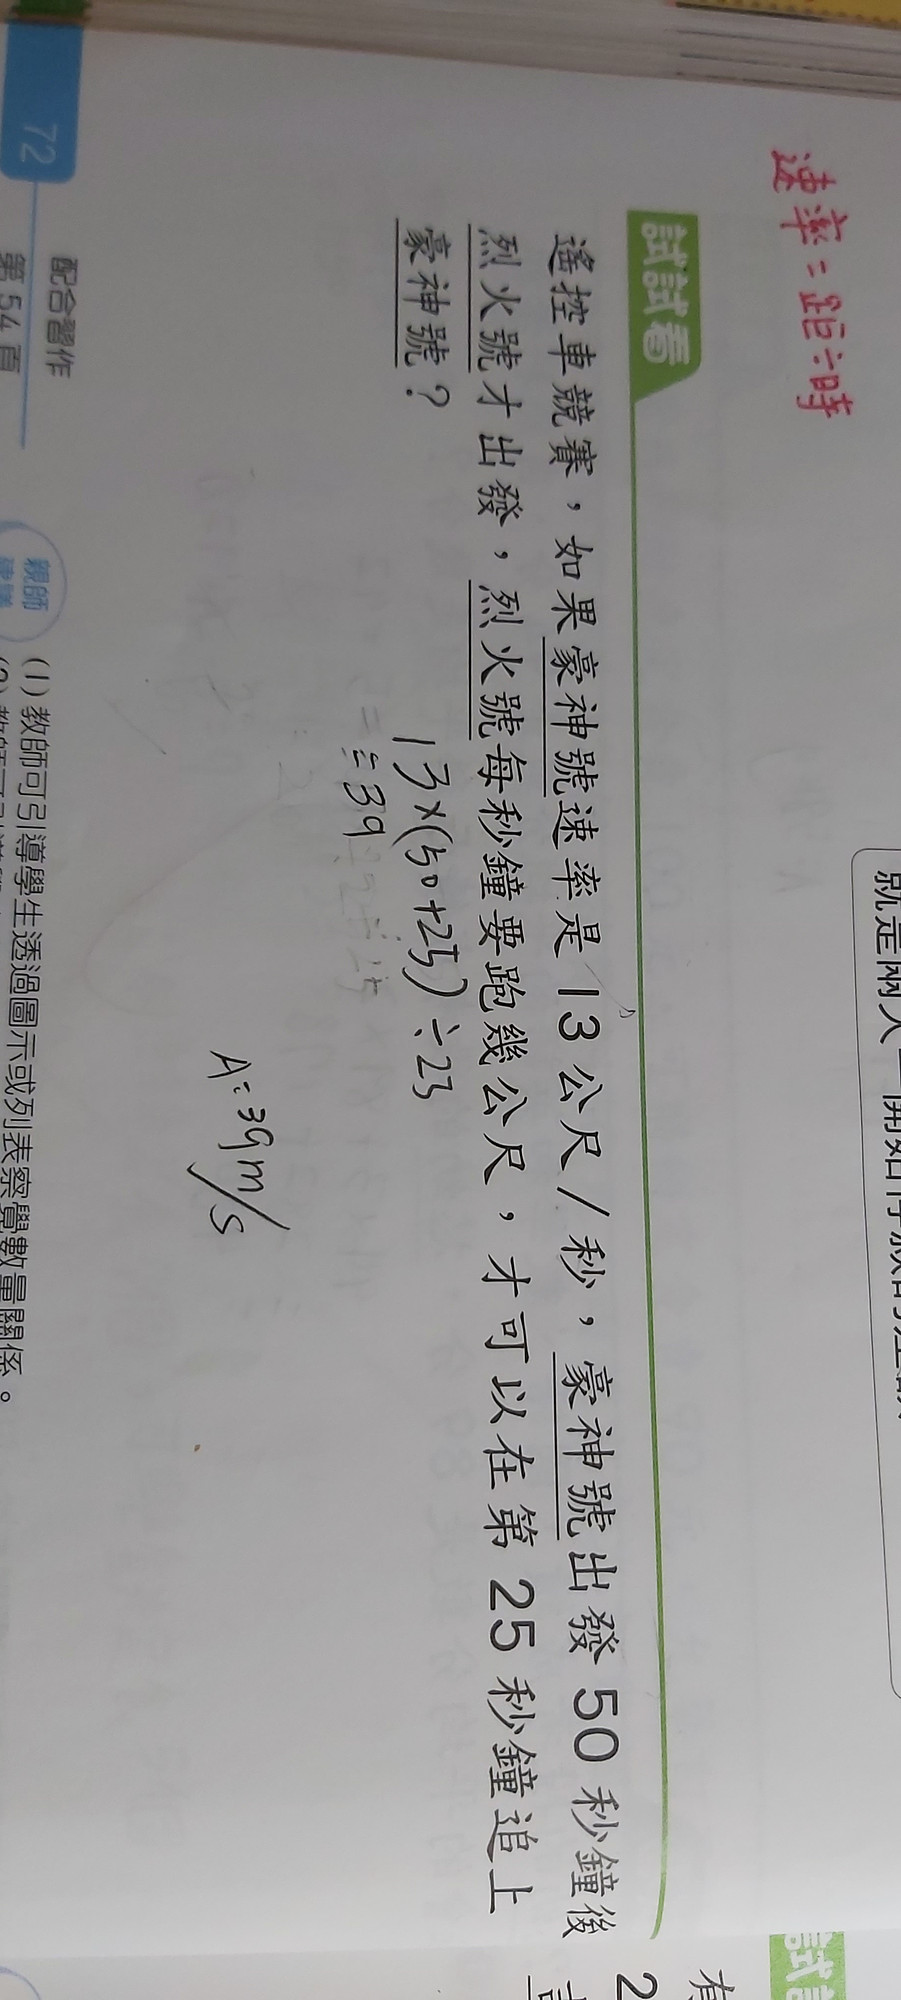 就是兩人一開始
速率=距÷時
試試看
遙控車競賽，如果豪神號速率是 13 公尺／秒，豪神號出發 50 秒鐘後
烈火號才出發，烈火號每秒鐘要跑幾公尺，才可以在第 25 秒鐘追上
豪神號？
13×(50+25)÷25
=39
A:39m/s
72
配合習作
第 54 頁
親師
(1) 教師可引導學生透過圖示或列表察覺數量關係。
試
有
2